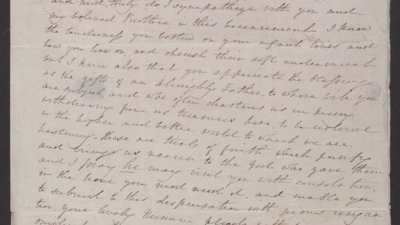 and most truly do I sympathize with you most
my beloved Brother in this bereavement I know
the tenderness you bestow on your infant loves and
how you live on and cherish their soft endearments
but I know also that you appreciate the blessings
as the gifts of an Almighty Father to whose rule you
are subject, and who often chastens us in mercy
withdrawing from us treasures here to be restored
in the higher and better world to which we are
hastening. these are trials of faith which purify
and brings us nearer to the God who gave them
and I pray he may visit you with consolation
in the hour you most need it. and enable you
to submit to this dispensation with pious resigna
tion your lovely